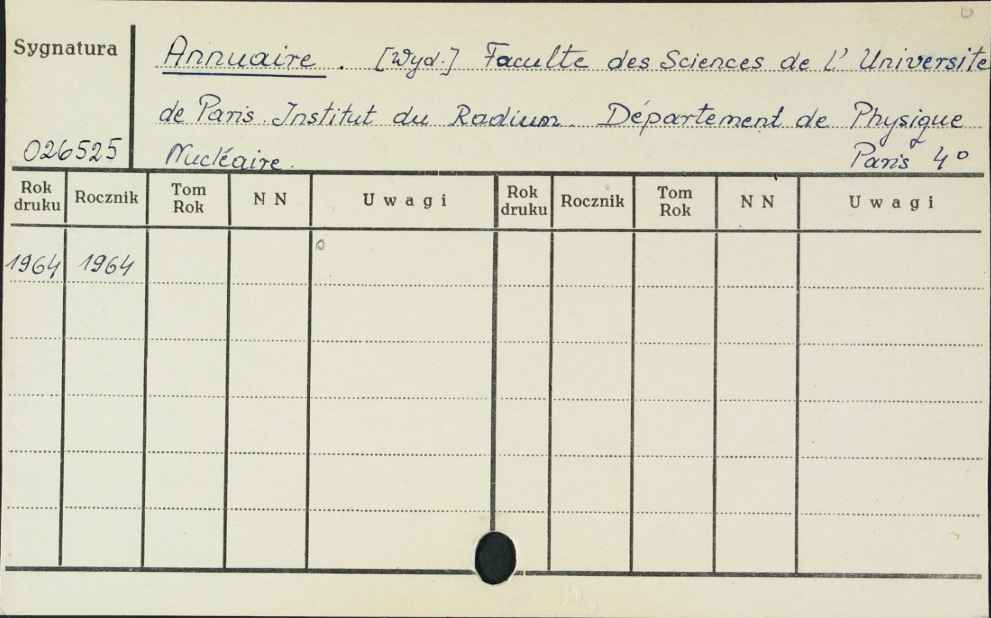 Sygnatura Annuaire. [Wyd.] Faculte des Sciences de L' Universite
de Paris. Institut du Radium. Département de Physique
026525 Nucléaire. Paris 4°
Rok druku Rocznik Tom Rok N N Uwagi Rok druku Rocznik Tom Rok N N Uwagi
1964 1964